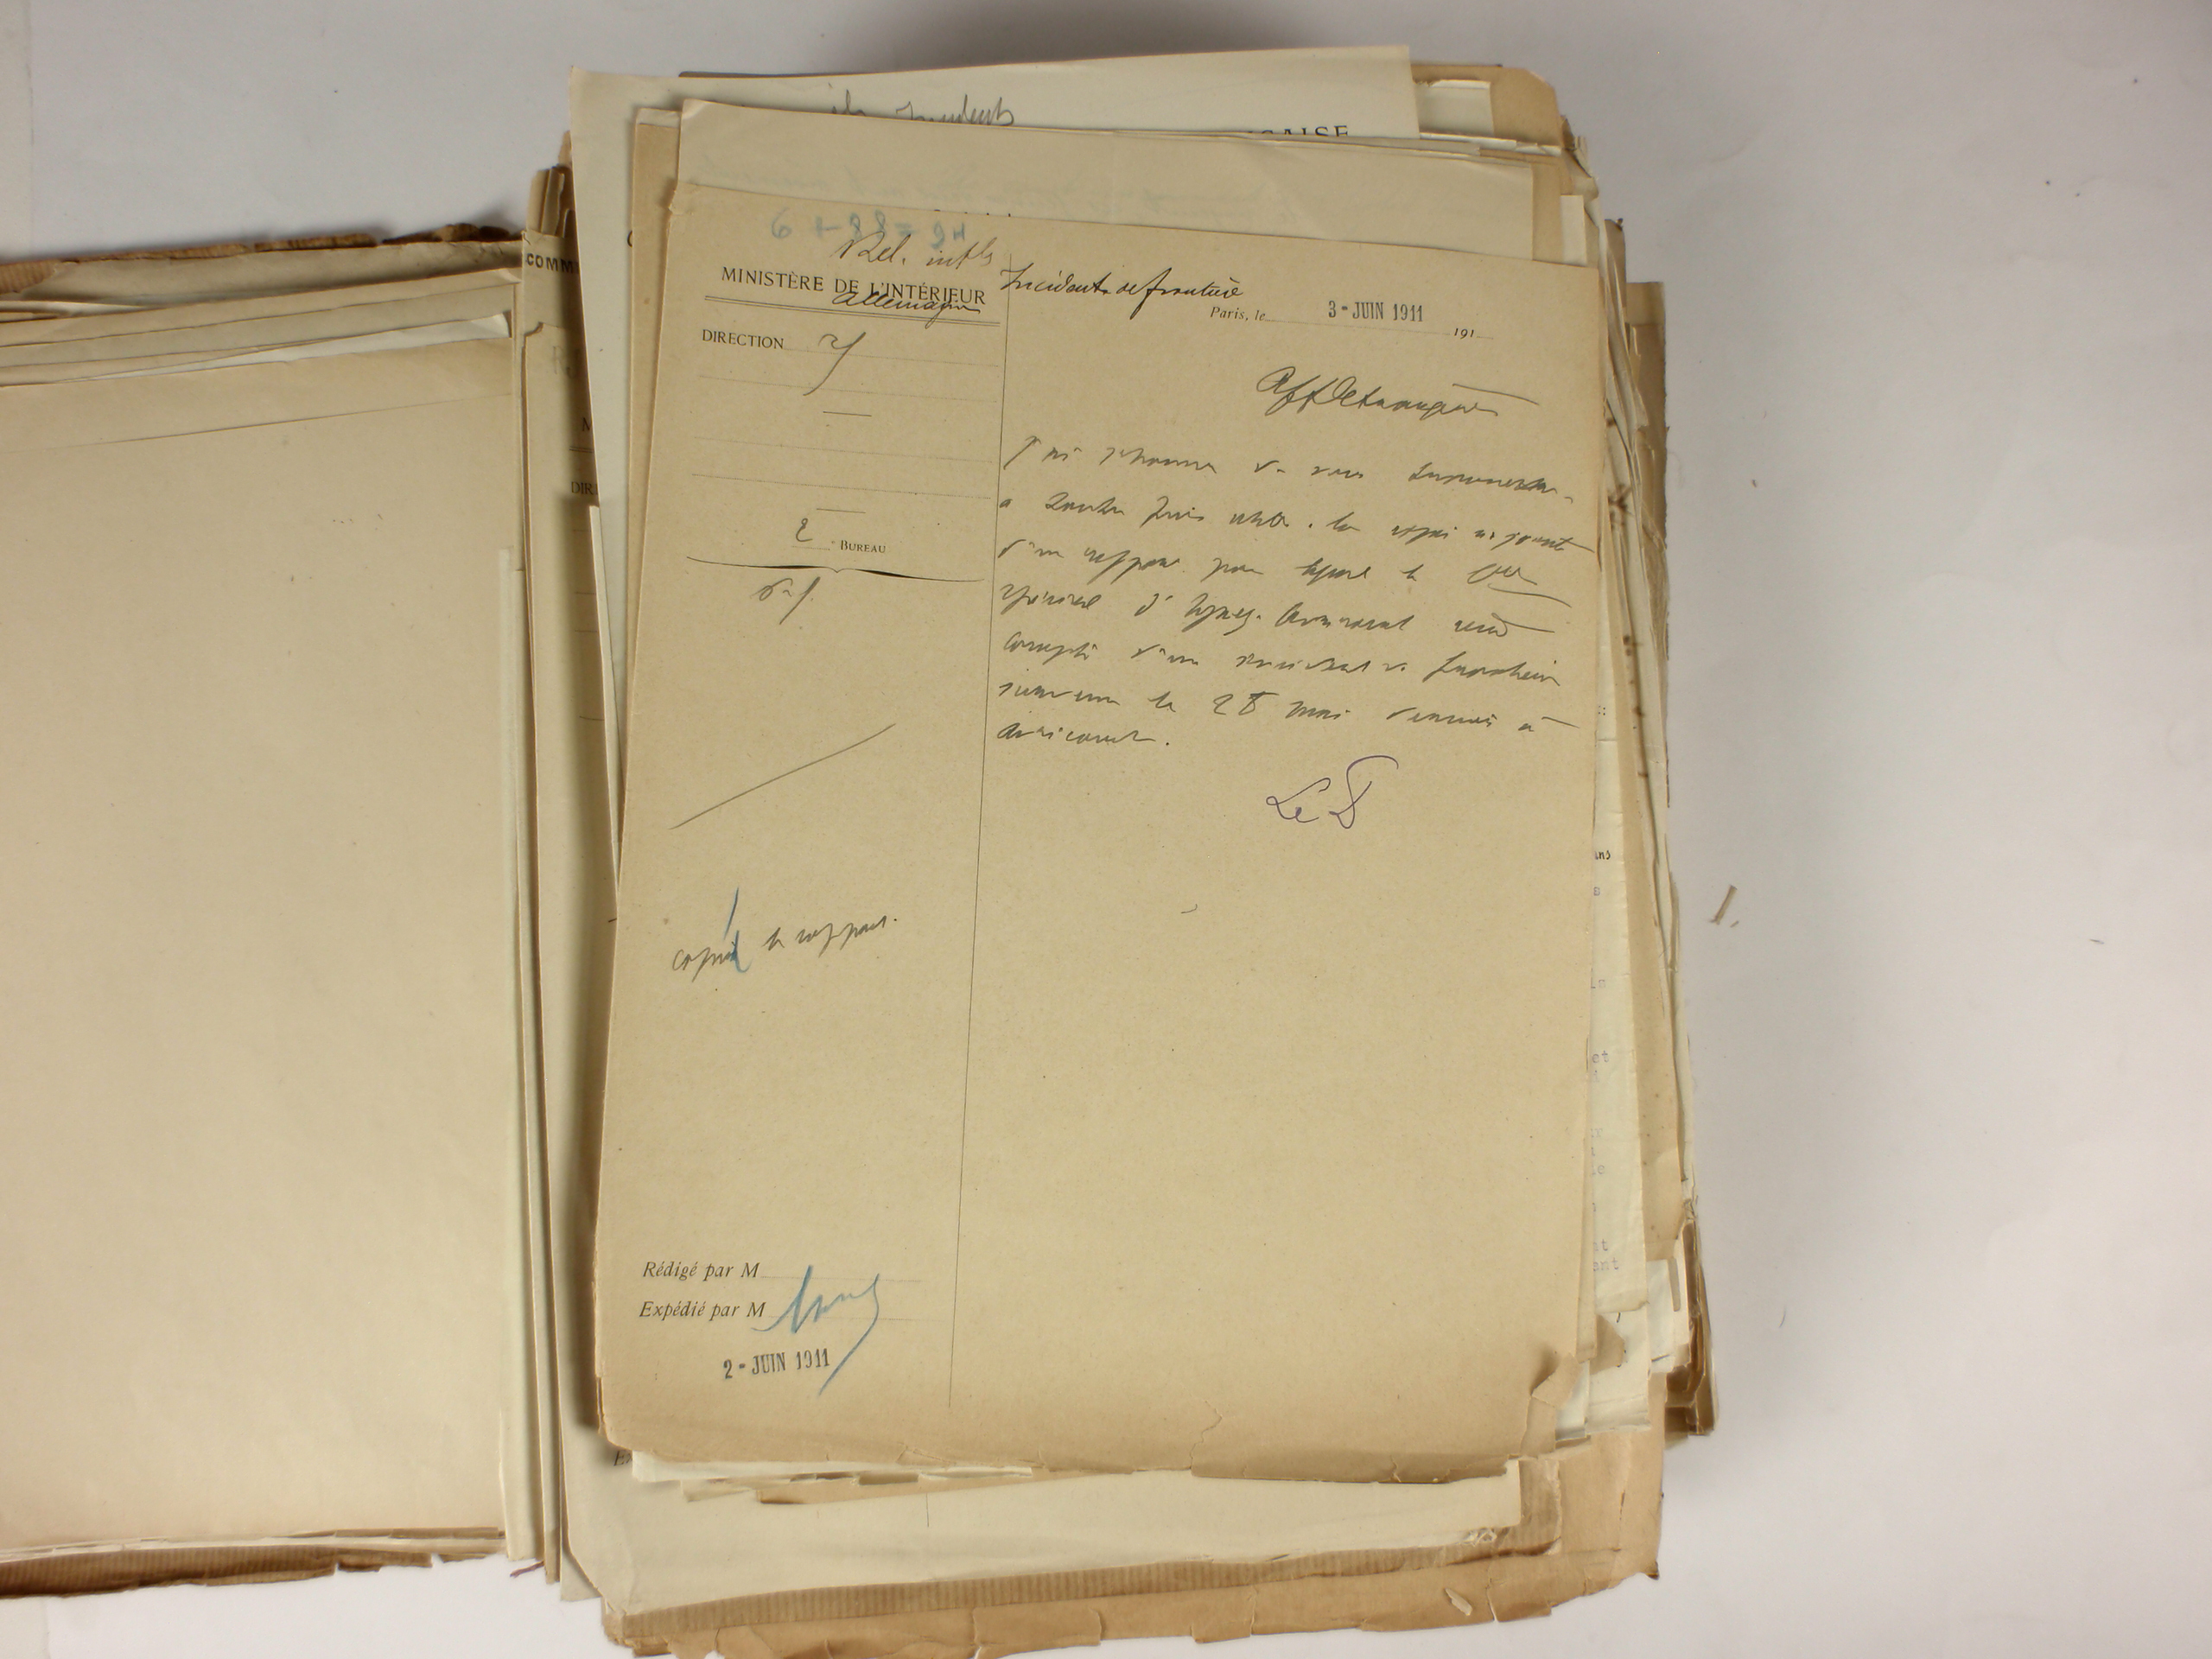 6 + 88 = 94
Rel. intles
MINISTÈRE DE L'INTÉRIEUR
Allemagne
Incidents de frontière
Paris, le 3 - JUIN 1911 191
DIRECTION
Aff Etrangères
J'ai l'honneur de vous transmettre
à toutes fins utiles, la copie ci-jointe
d'un rapport par lequel le
général d'Igney-Avricourt rend
compte d'un incident de frontière
survenu le 28 mai dernier à
Avricourt.
Le D
2e BUREAU
copier le rapport.
Rédigé par M
Expédié par M
2 - JUIN 1911
COMM
DIR
ÇAISE
ans
et
le
st
ant